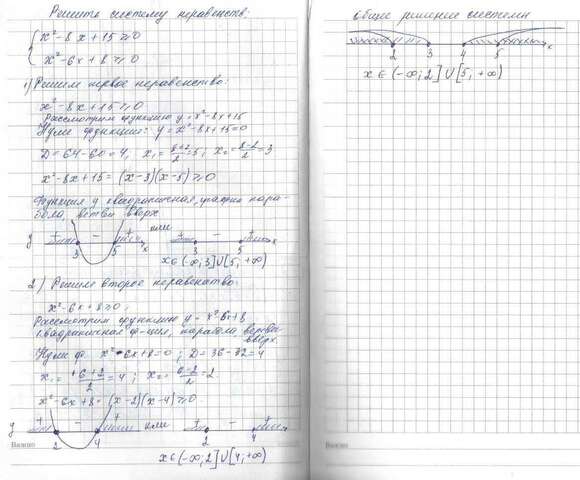 Решить систему неравенств:
x² - 8x + 15 ≥ 0
x² - 6x + 8 ≥ 0
1) Решим первое неравенство:
x² - 8x + 15 ≥ 0
Рассмотрим функцию y = x² - 8x + 15
Нули функции: y = x² - 8x + 15 = 0
D = 64 - 60 = 4, x₁ = (8+2)/2 = 5; x₂ = (8-2)/2 = 3
x² - 8x + 15 = (x - 3)(x - 5) ≥ 0
Функция y квадратичная, график пара-
бола, ветви вверх
y + - + x или + - + x
3 5 3 5
x ∈ (-∞; 3] ∪ [5; +∞)
2) Решим второе неравенство:
x² - 6x + 8 ≥ 0
Рассмотрим функцию y = x² - 6x + 8
квадратичная ф-ция, парабола, ветви
вверх
Нули ф. x² - 6x + 8 = 0; D = 36 - 32 = 4
x₁ = (+6+2)/2 = 4; x₂ = (6-2)/2 = 2
x² - 6x + 8 = (x - 2)(x - 4) ≥ 0
y + - + или + - +
2 4 2 4
x ∈ (-∞; 2] ∪ [4; +∞)
Общее решение системы
2 3 4 5 x
x ∈ (-∞; 2] ∪ [5; +∞)